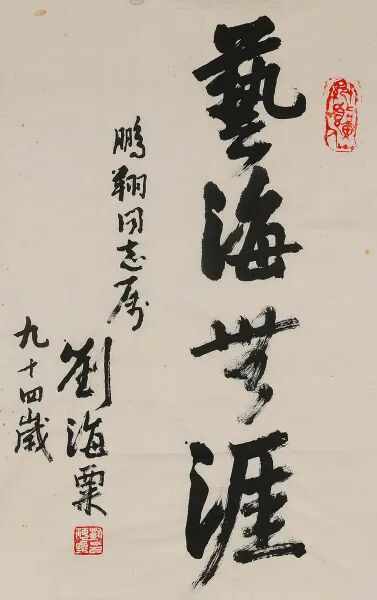 藝海無涯
鵬翔同志属
劉海粟
九十四歲